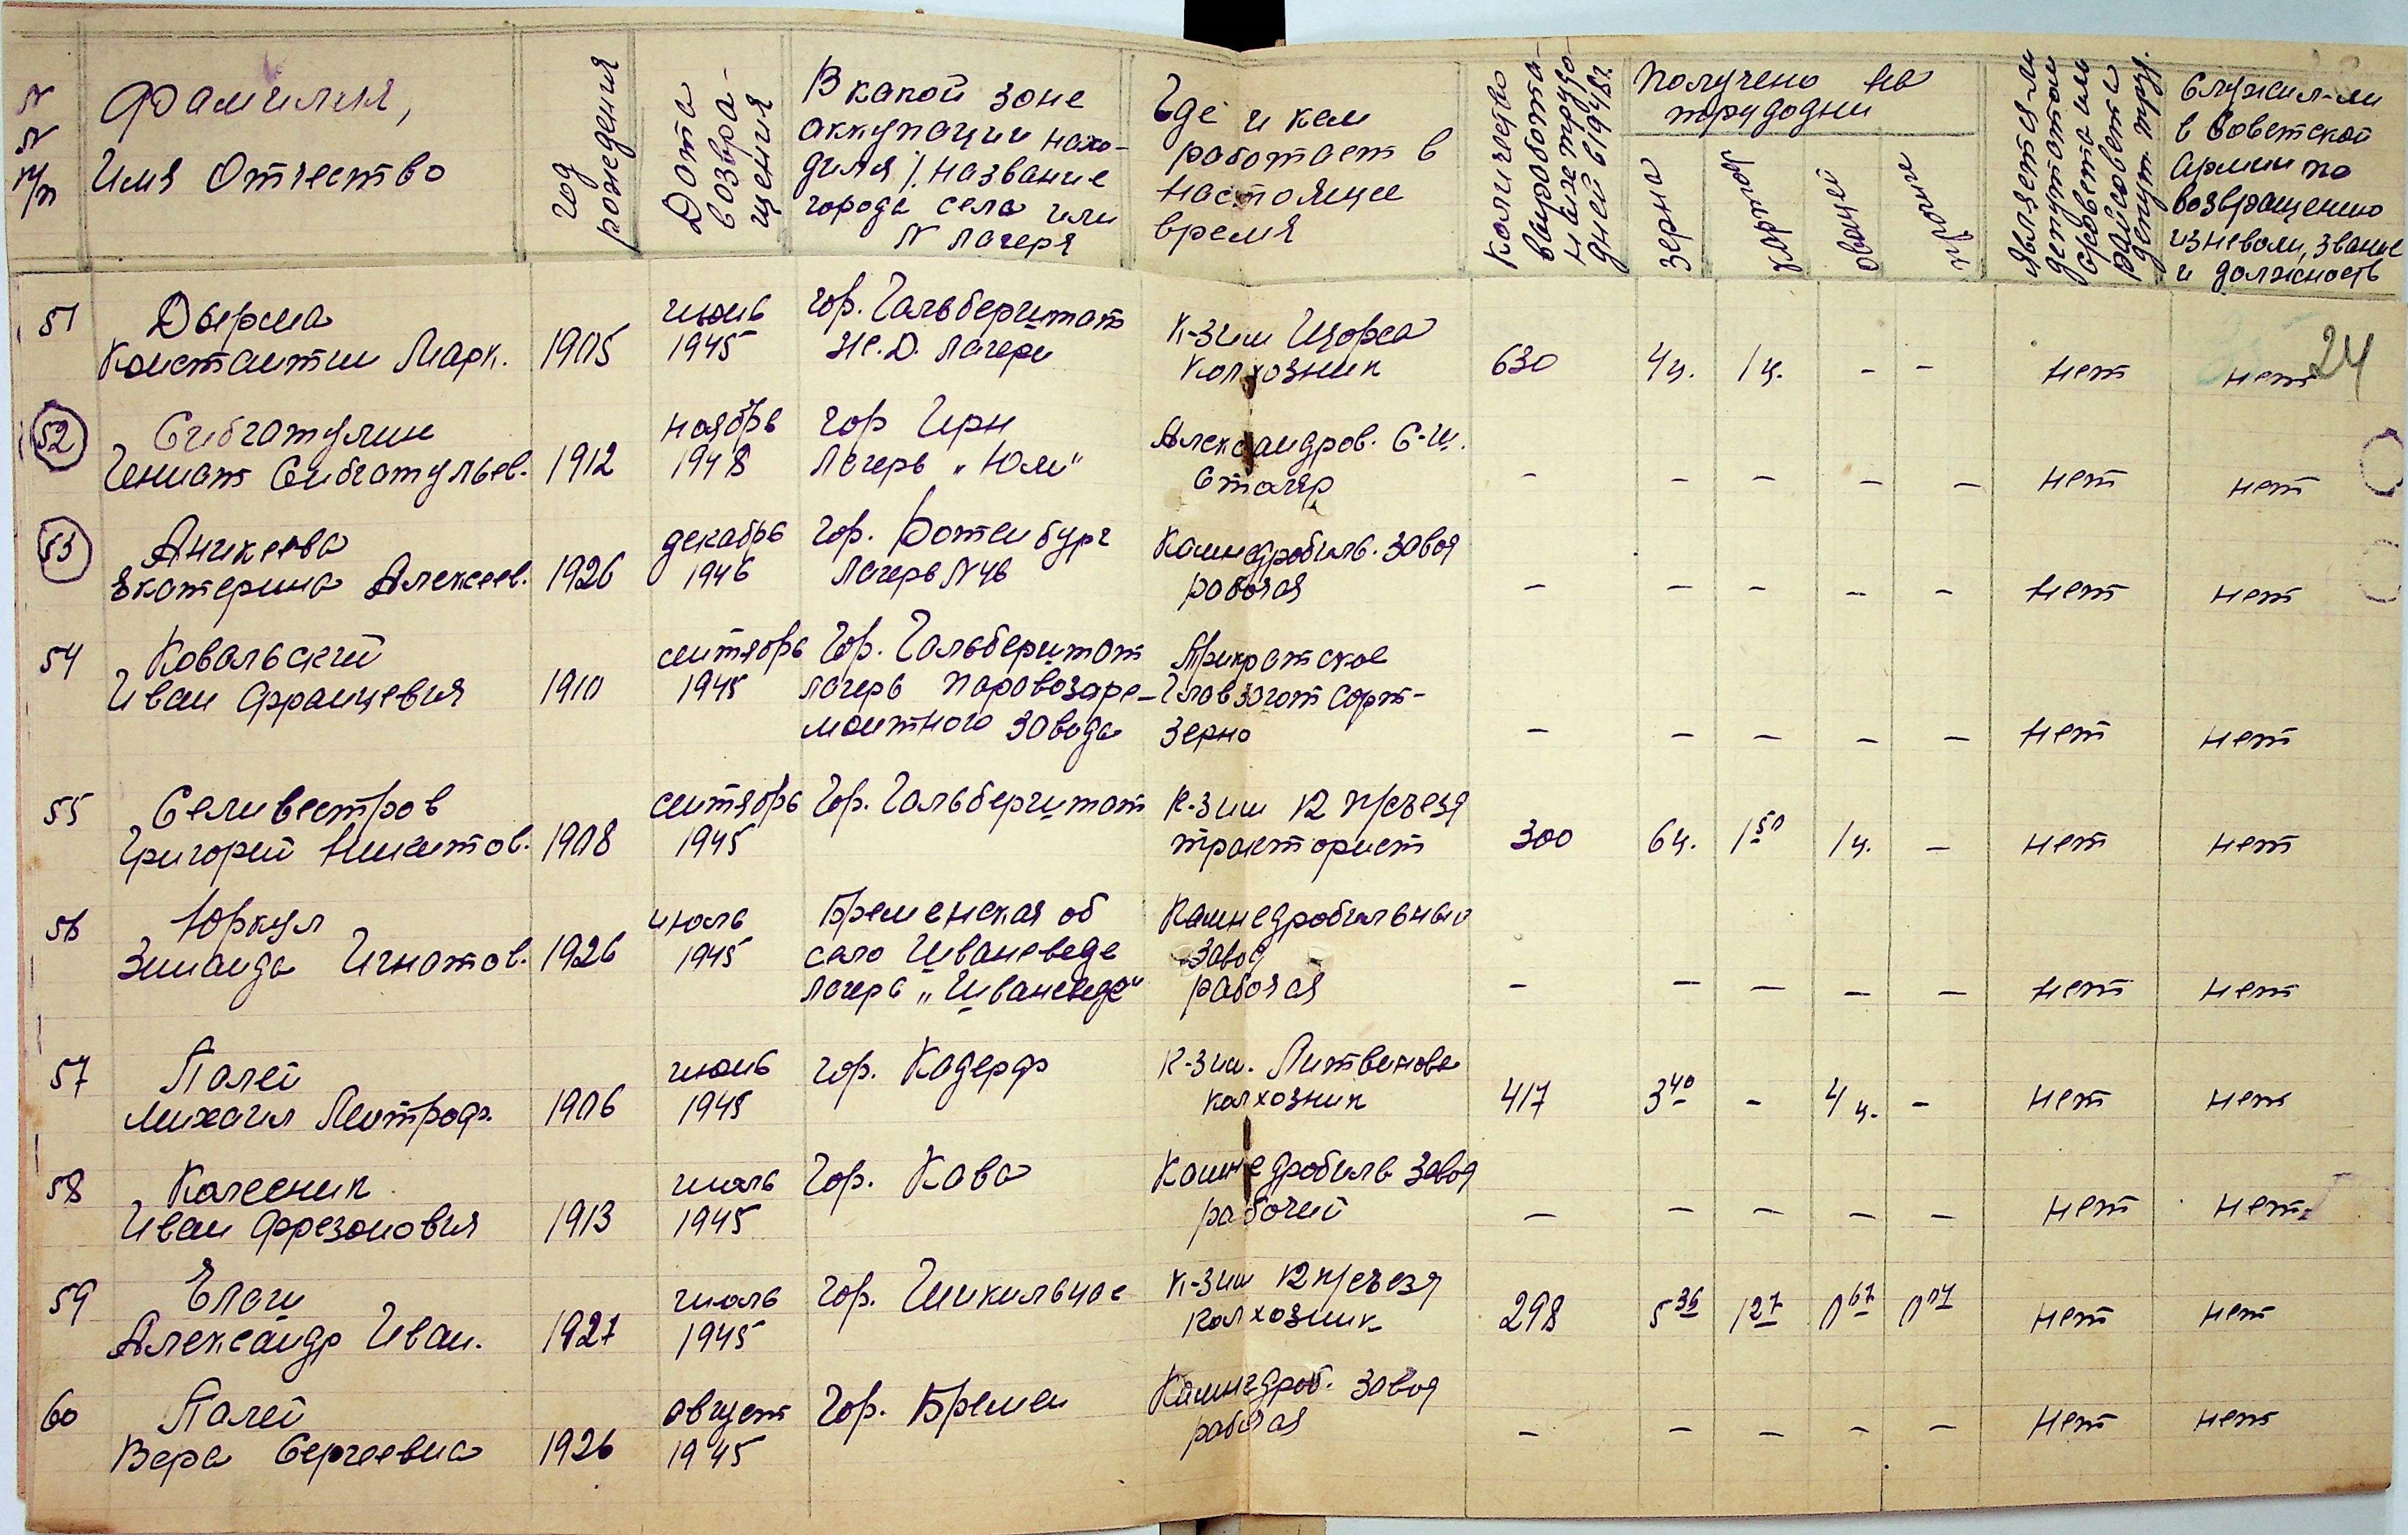 N N п/п
Фамилия,
Имя Отчество
год рождения
Дата возвра-
щения
В какой зоне
аккупации нахо-
дился /. название
города села или
N лагеря
Где и кем
работает в
настоящее
время
Количество
выработа-
ных трудо-
дней в 1948г.
Получено на
трудодни
зерна
картоф
овощей
прочих
Является-ли
депутатом
с/совета или
райсовета
депут. труд.
Служил-ли
в Советской
армии по
возвращению
из неволи, звание
и должность
24
51 Дырма июнь гор. Гальберштат К-з им Щорса
Константин Марк. 1905 1945 Ж.Д. лагерь колхозник 630 4ц. 1ц. - - нет нет
52 Сибгатулин ноябрь гор Ирн Александров. С-Ш.
Гениат Сибгатульев. 1912 1948 Лагерь „Юли" Столяр - - - - - нет нет
53 Аникеева декабрь гор. Ротенбург Камнедробиль. завод
Екатерина Алексеев. 1926 1946 Лагерь N 46 рабочая - - - - - нет нет
54 Ковальский сентябрь Гор. Гальберштат Трикратское
Иван Францевич 1910 1945 лагерь паровозоре- Главзагот сорт-
монтного завода зерно - - - - - нет нет
55 Селивестров сентябрь Гор. Гальберштат К-з им 12 п/съезд
Григорий Никитов. 1908 1945 тракторист 300 6ц. 1 50 1ц. - нет нет
56 Юркул июль Бременская об Камнедробильный
Зинаида Игнатов. 1926 1945 село Шваневеде завод
лагерь „Шваневеде" рабочая - - - - - нет нет
57 Палей июнь гор. Кадерф К-з им. Литвинова
Михаил Митроф. 1906 1945 колхозник 417 3 40 - 4ц. - нет нет
58 Колесник июль Гор. Кава Камнедробиль завод
Иван Фрезонович 1913 1945 рабочий - - - - - нет нет
59 Елагин июль Гор. Шикильное К-з им 12 п/съезд
Александр Иван. 1927 1945 колхозник 298 5 36 1 27 0 67 0 04 нет нет
60 Палей август Гор. Бремен Камнедроб. завод
Вера Сергеевна 1926 1945 рабочая - - - - - нет нет